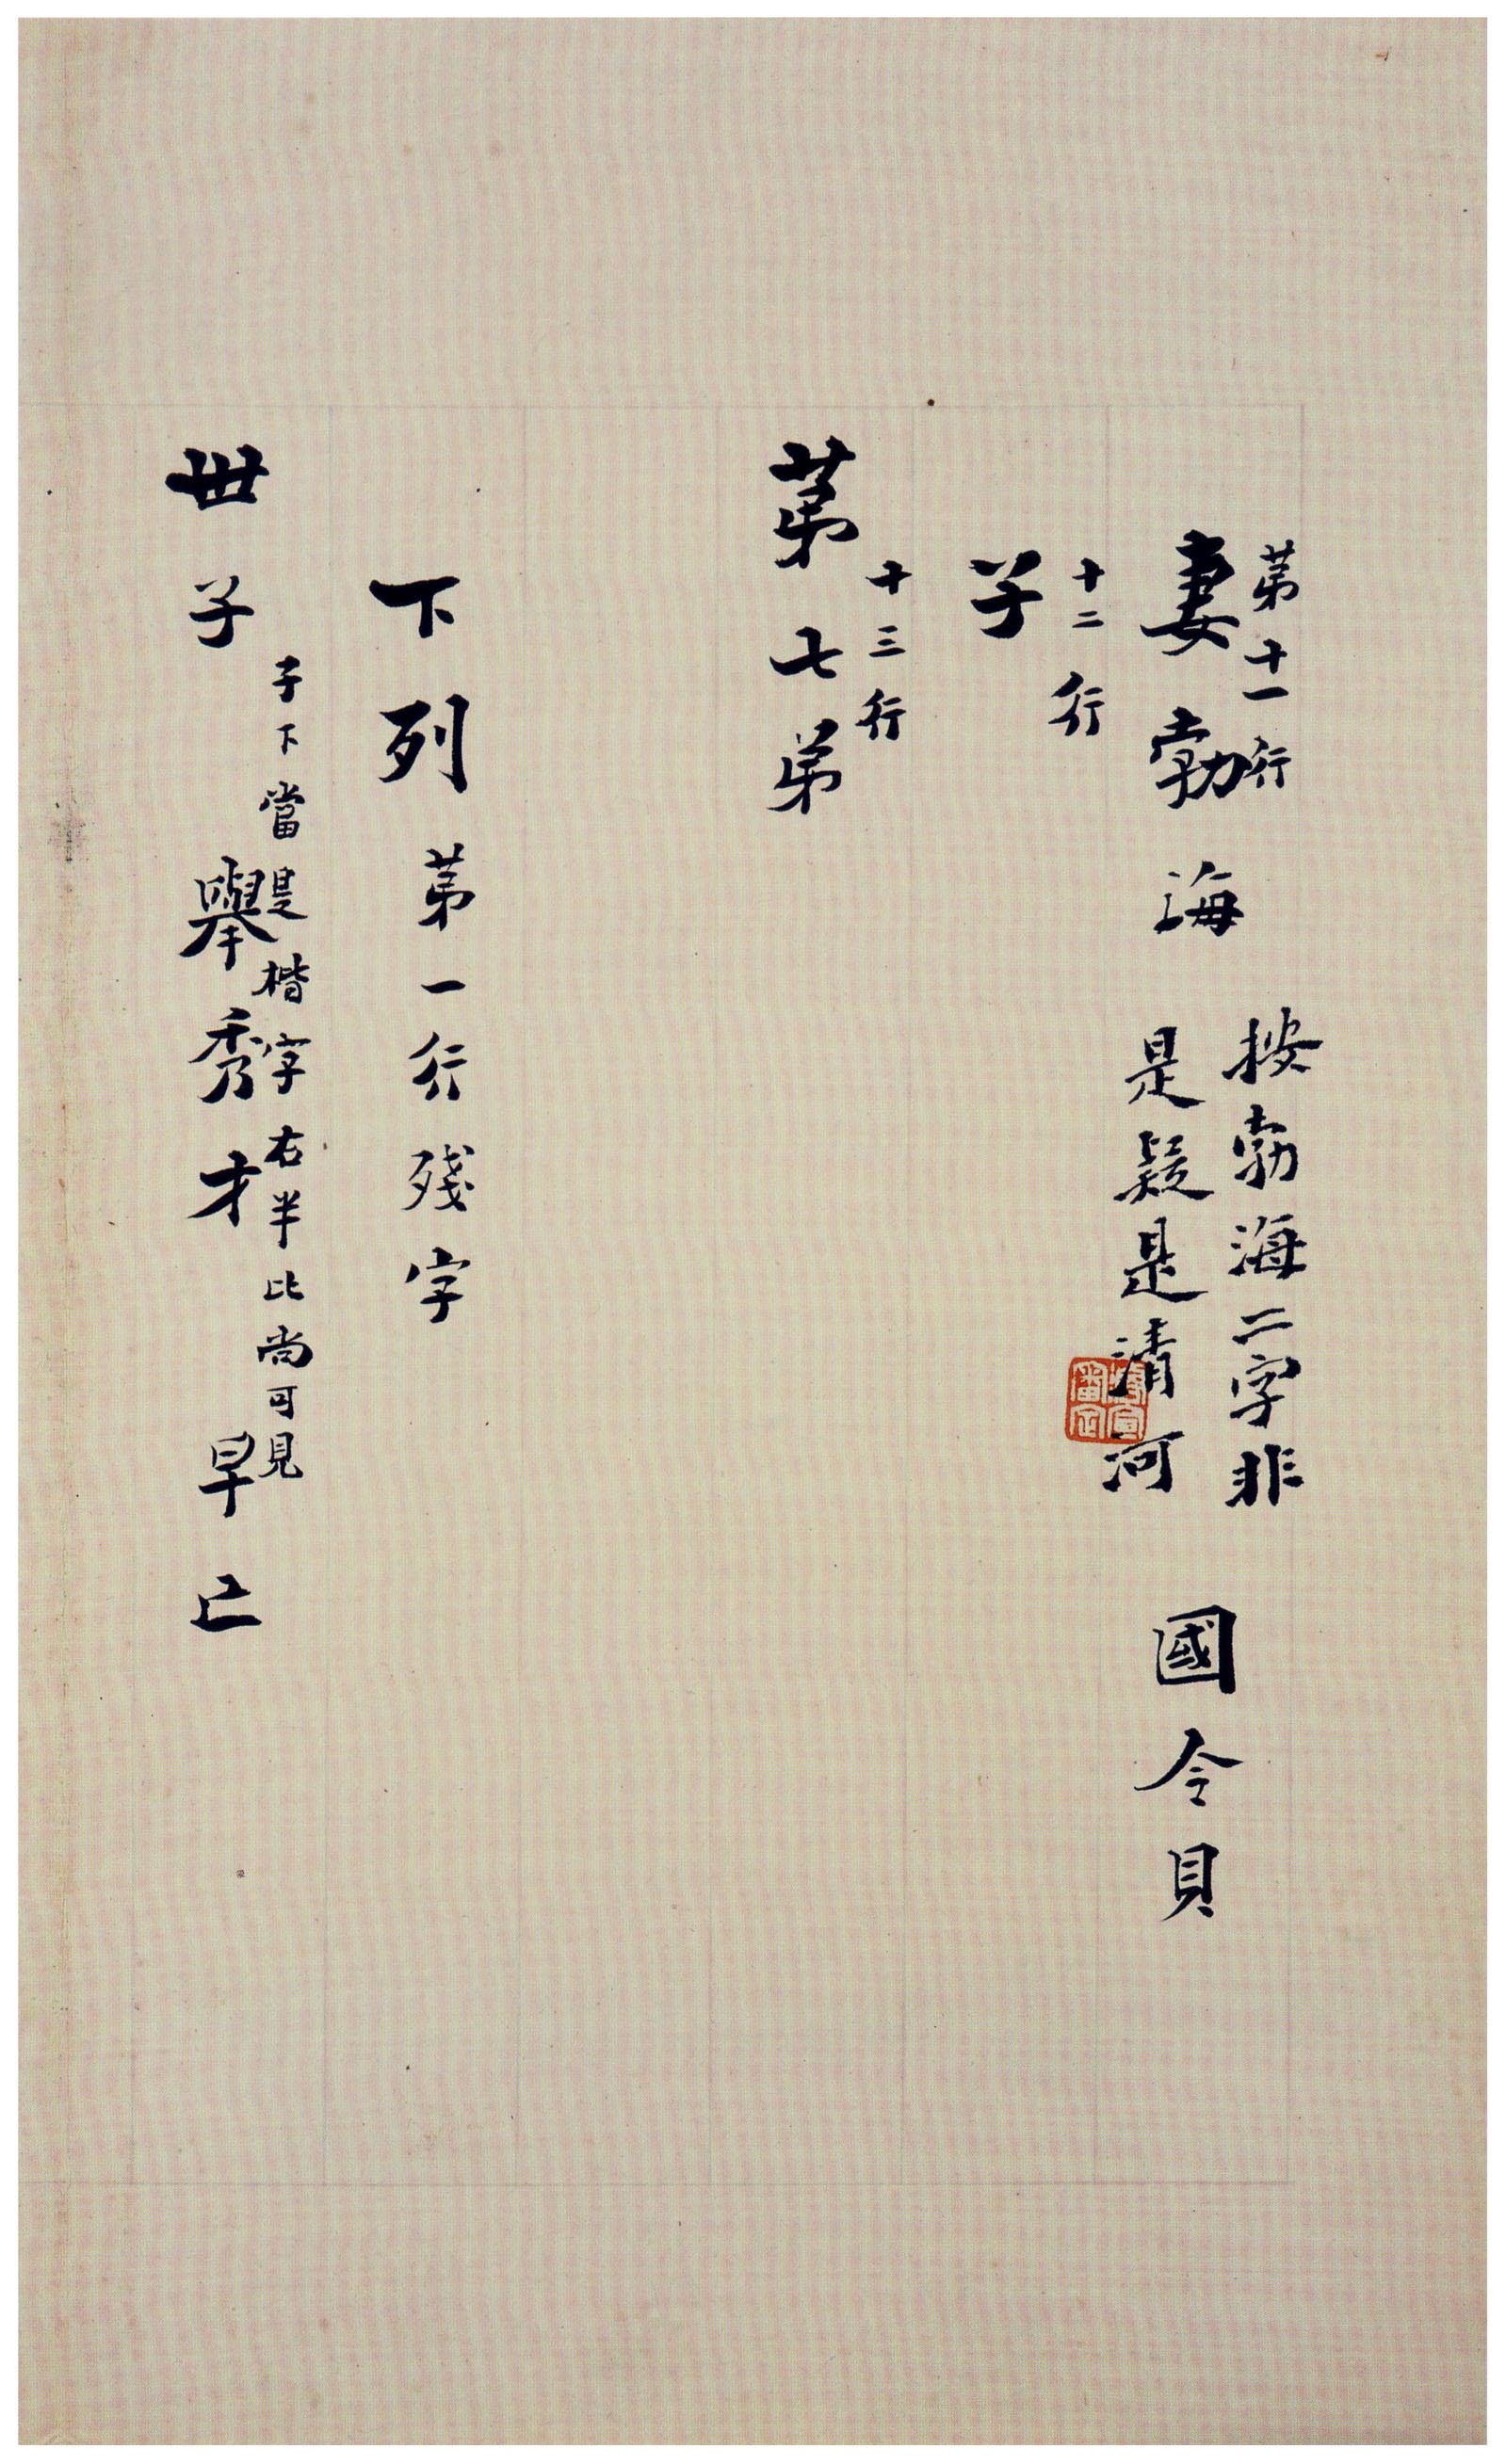 苐十一行
妻勃海
按勃海二字非
是疑是清河
國令貝
十二行
子
十三行
苐七弟
下列苐一行殘字
子下當是楷字右半比尚可見
丗子
舉秀才
早亡